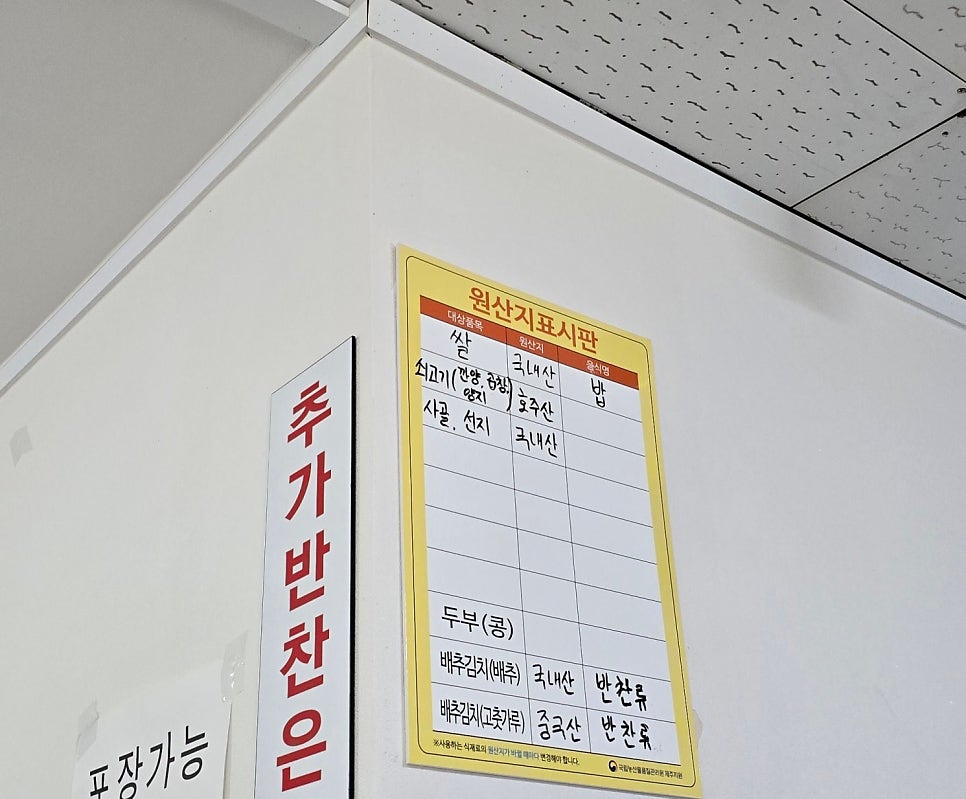 원산지표시판
대상품목 원산지 음식명
쌀 국내산 밥
쇠고기(깐양, 곱창, 양지) 호주산
사골, 선지 국내산
두부(콩)
배추김치(배추) 국내산 반찬류
배추김치(고춧가루) 중국산 반찬류
※사용하는 식재료의 원산지가 바뀔 때마다 변경해야 합니다.
국립농산물품질관리원 제주지원
추가반찬은
포장가능